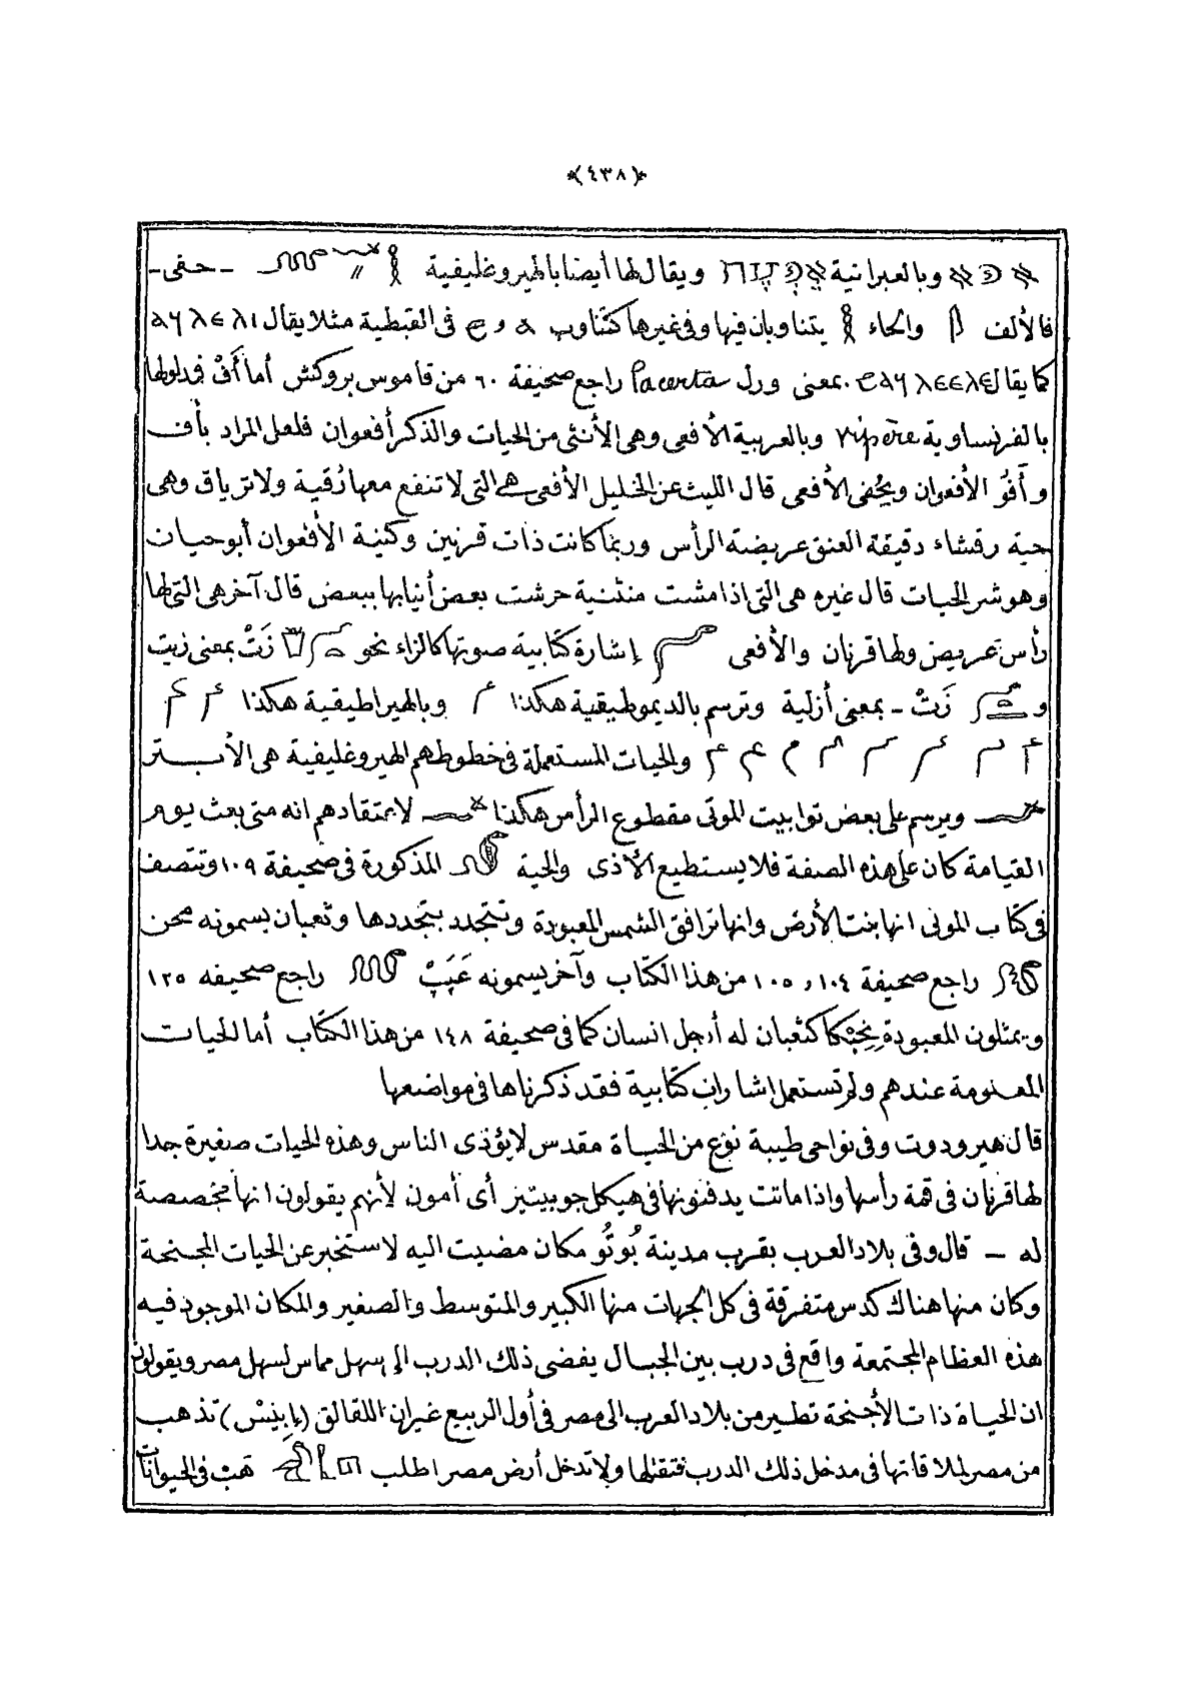 ﴿٤٣٨﴾
وبالعبرانية ويقال لها أيضا بالهيروغليفية - حفى -
فالألف والحاء يتناوبان فيها وفى غيرها كتناوب و فى القبطية مثلا يقال
كما يقال بمعنى ورل Lacerta راجع صحيفة ٦٠ من قاموس بروكش أما أَفْ فمدلولها
بالفرنساوية vipère وبالعربية الأفعى وهى الأنثى من الحيات والذكر أفعوان فلعل المراد بأف
وأَفُو الأفعوان وبحفى الأفعى قال الليث عن الخليل الأفعى هى التى لا تنفع معها رُقية ولا ترياق وهى
حية رقشاء دقيقة العنق عريضة الرأس وربما كانت ذات قرنين وكنية الأفعوان أبو حيان
وهو شر الحيات قال غيره هى التى اذا مشت منثنية حرشت بعض أنيابها ببعض قال آخر هى التى لها
رأس عريض ولها قرنان والأفعى إشارة كتابية صوتها كالزاء نحو زَتْ بمعنى زيت
و زَتْ - بمعنى أزلية وترسم بالديموطيقية هكذا وبالهيراطيقية هكذا
والحيات المستعملة فى خطوطهم الهيروغليفية هى الأبتر
ويرسم على بعض توابيت الموتى مقطوع الرأس هكذا لاعتقادهم انه متى بعث يوم
القيامة كان على هذه الصفة فلا يستطيع الأذى والحية المذكورة فى صحيفة ١٠٩ وتتصف
فى كتاب الموتى انها بنت الأرض وانها ترافق الشمس المعبودة وتتجدد بتجددها وثعبان يسمونه محن
راجع صحيفة ١٠٤ و ١٠٥ من هذا الكتاب وآخر يسمونه عَپَپْ راجع صحيفه ١٢٥
ويمثلون المعبودة كثعبان له أرجل انسان كما فى صحيفة ١٤٨ من هذا الكتاب أما الحيات
المعلومة عندهم ولم تستعمل اشارات كتابية فقد ذكرناها فى مواضعها
قال هيرودوت وفى نواحى طيبة نوع من الحياة مقدس لا يؤذى الناس وهذه الحيات صغيرة جدا
لها قرنان فى قمة رأسها واذا ماتت يدفنونها فى هيكل جوبيتير أى أمون لأنهم يقولون انها مخصصة
له - قال وفى بلاد العرب بقرب مدينة بُوتُو مكان مضيت اليه لاستخبر عن الحيات المجنحة
وكان منها هناك كدس متفرقة فى كل الجهات منها الكبير والمتوسط والصغير والمكان الموجود فيه
هذه العظام المجتمعة واقع فى درب بين الجبال يفضى ذلك الدرب الى سهل مماس لسهل مصر ويقولون
ان الحياة ذات الأجنحة تطير من بلاد العرب الى مصر فى أول الربيع غير ان اللقالق (إِبِيْسْ) تذهب
من مصر لملاقاتها فى مدخل ذلك الدرب فتقتلها ولا تدخل أرض مصر اطلب فى الحيوانات